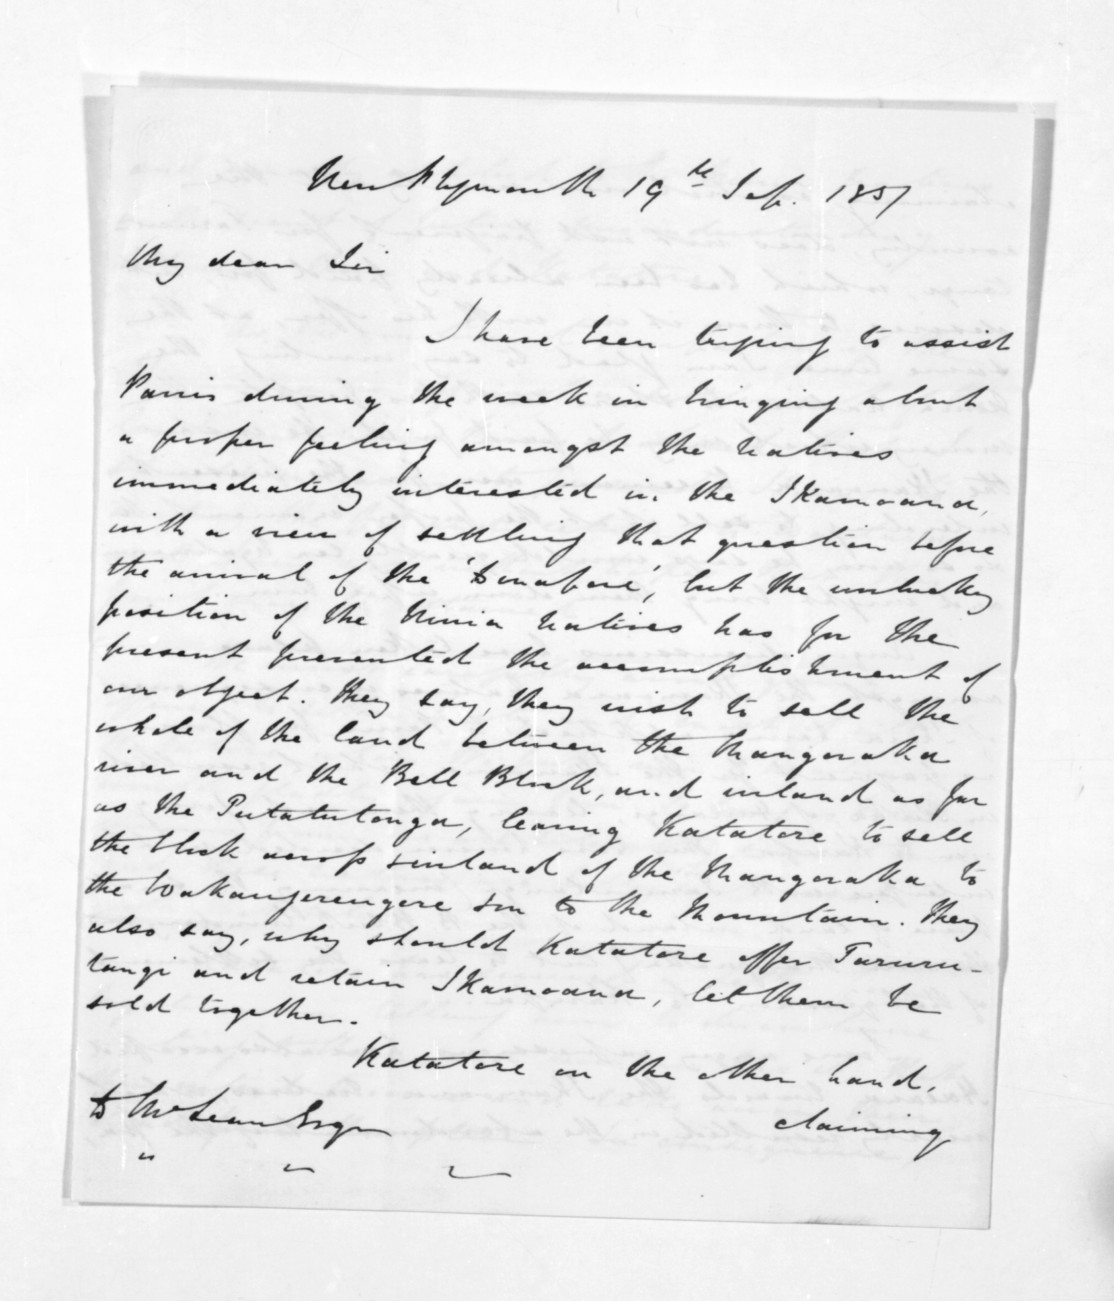 New Plymouth 19th Sep. 1857
My dear Sir
I have been trying to assist
Parris during the week in bringing about
a proper feeling amongst the natives
immediately interested in the Ikamoana,
with a view of settling that question before
the arrival of the 'Zenafore', but the unlucky
position of the Ninia natives has for the
present prevented the accomplishment of
our object. They say, they wish to sell the
whole of the land between the Mangoraka
river and the Bell Block, and inland as far
as the Putatutonga, leaving Katatore to sell
the block across & inland of the Mangoraka to
the Wakangerengere sin to the Mountain. They
also say, why should Katatore offer Taruru-
tangi and retain Ikamoana, let them be
sold together.
Katatore on the other hand,
D McLean Esqre
claiming
" " "